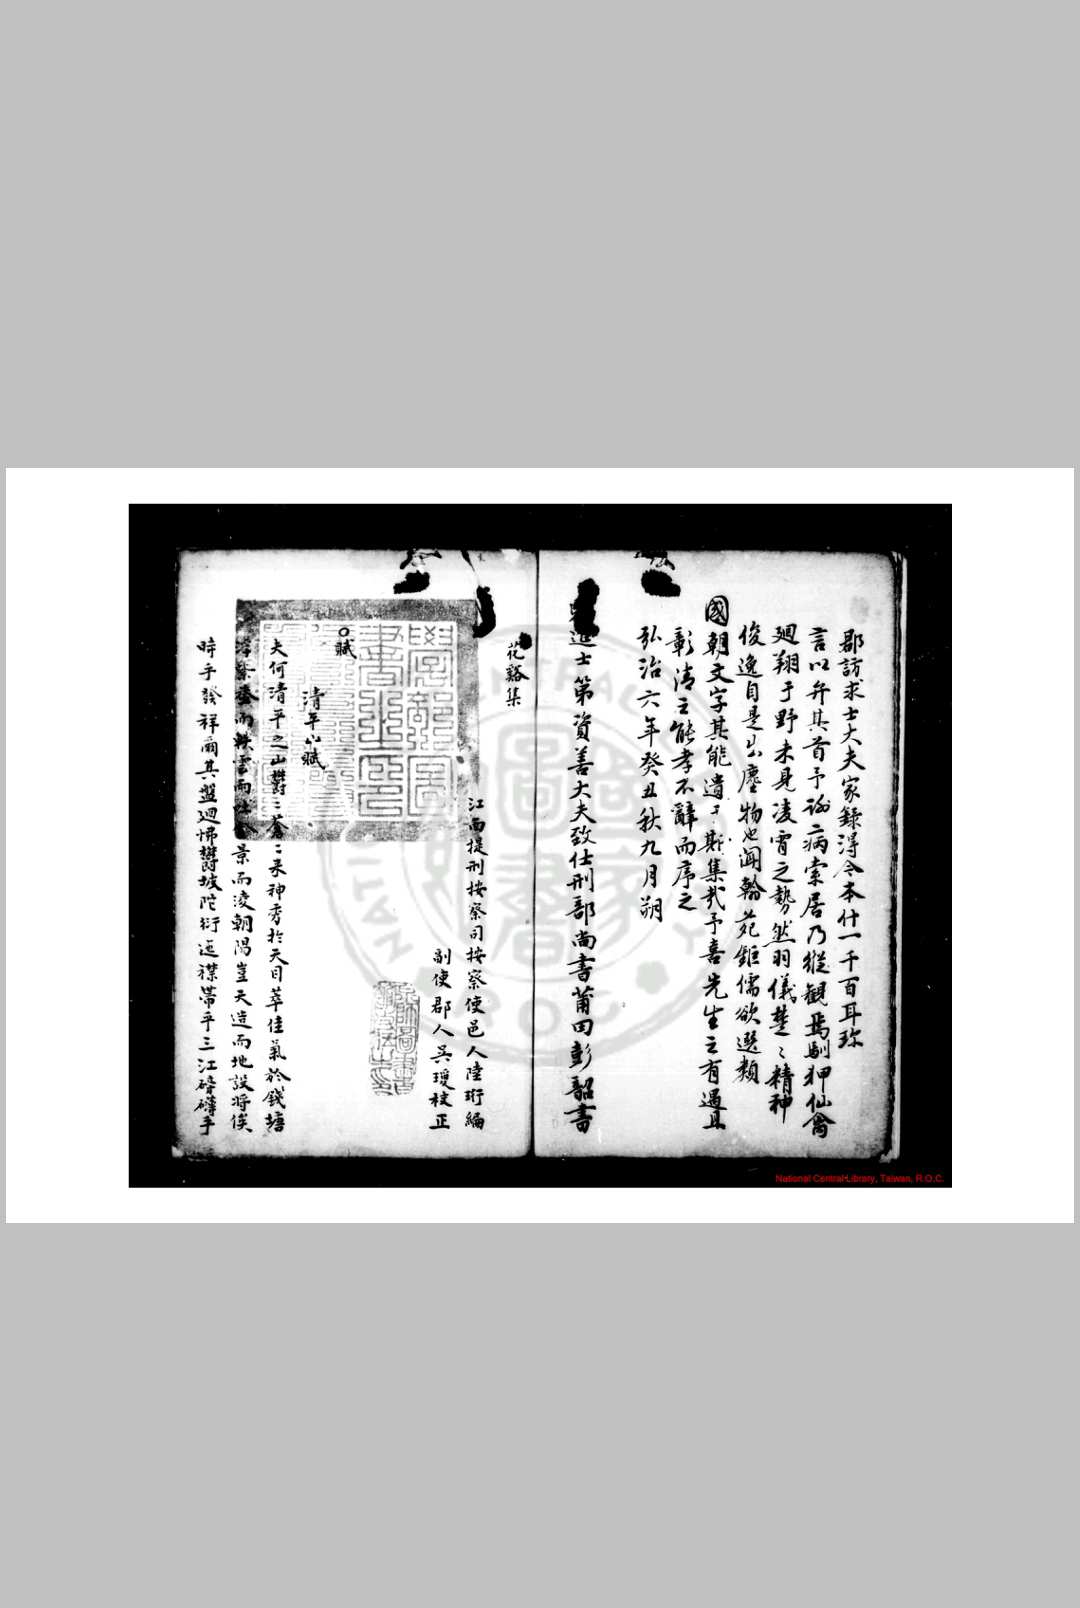 郡訪求士大夫家錄得今本什一千百耳珎
言以弁其首予謝病索居乃縱觀焉馴狎仙禽
廻翔于野未見凌霄之勢然羽儀楚〻精神
俊逸自是出塵物也聞翰苑鉅儒欲選類
國朝文字其能遺于斯集哉予喜先生之有遇且
彰清之能孝不辭而序之
弘治六年癸丑秋九月朔
進士第資善大夫致仕刑部尚書莆田彭韶書
花谿集
江西提刑按察司按察使邑人陸珩編
副使郡人吳瓊校正
賦
清平山賦
夫何清平之山欝〻蒼〻来神秀於天目萃佳氣於錢塘
紫 而 雲而 景而凌朝陽豈天造而地設將俟
時乎發祥爾其盤廻怫欝坡陀衍迤襟帶乎三江磅礴乎
National Central Library, Taiwan, R.O.C.